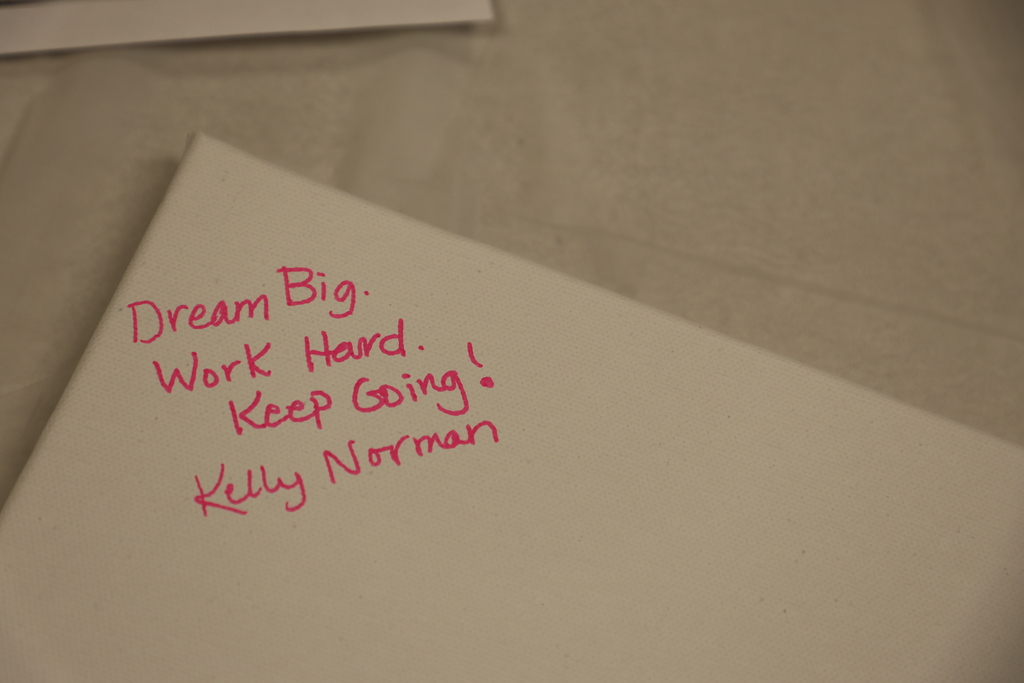 Dream Big.
Work Hard.
Keep Going!
Kelly Norman